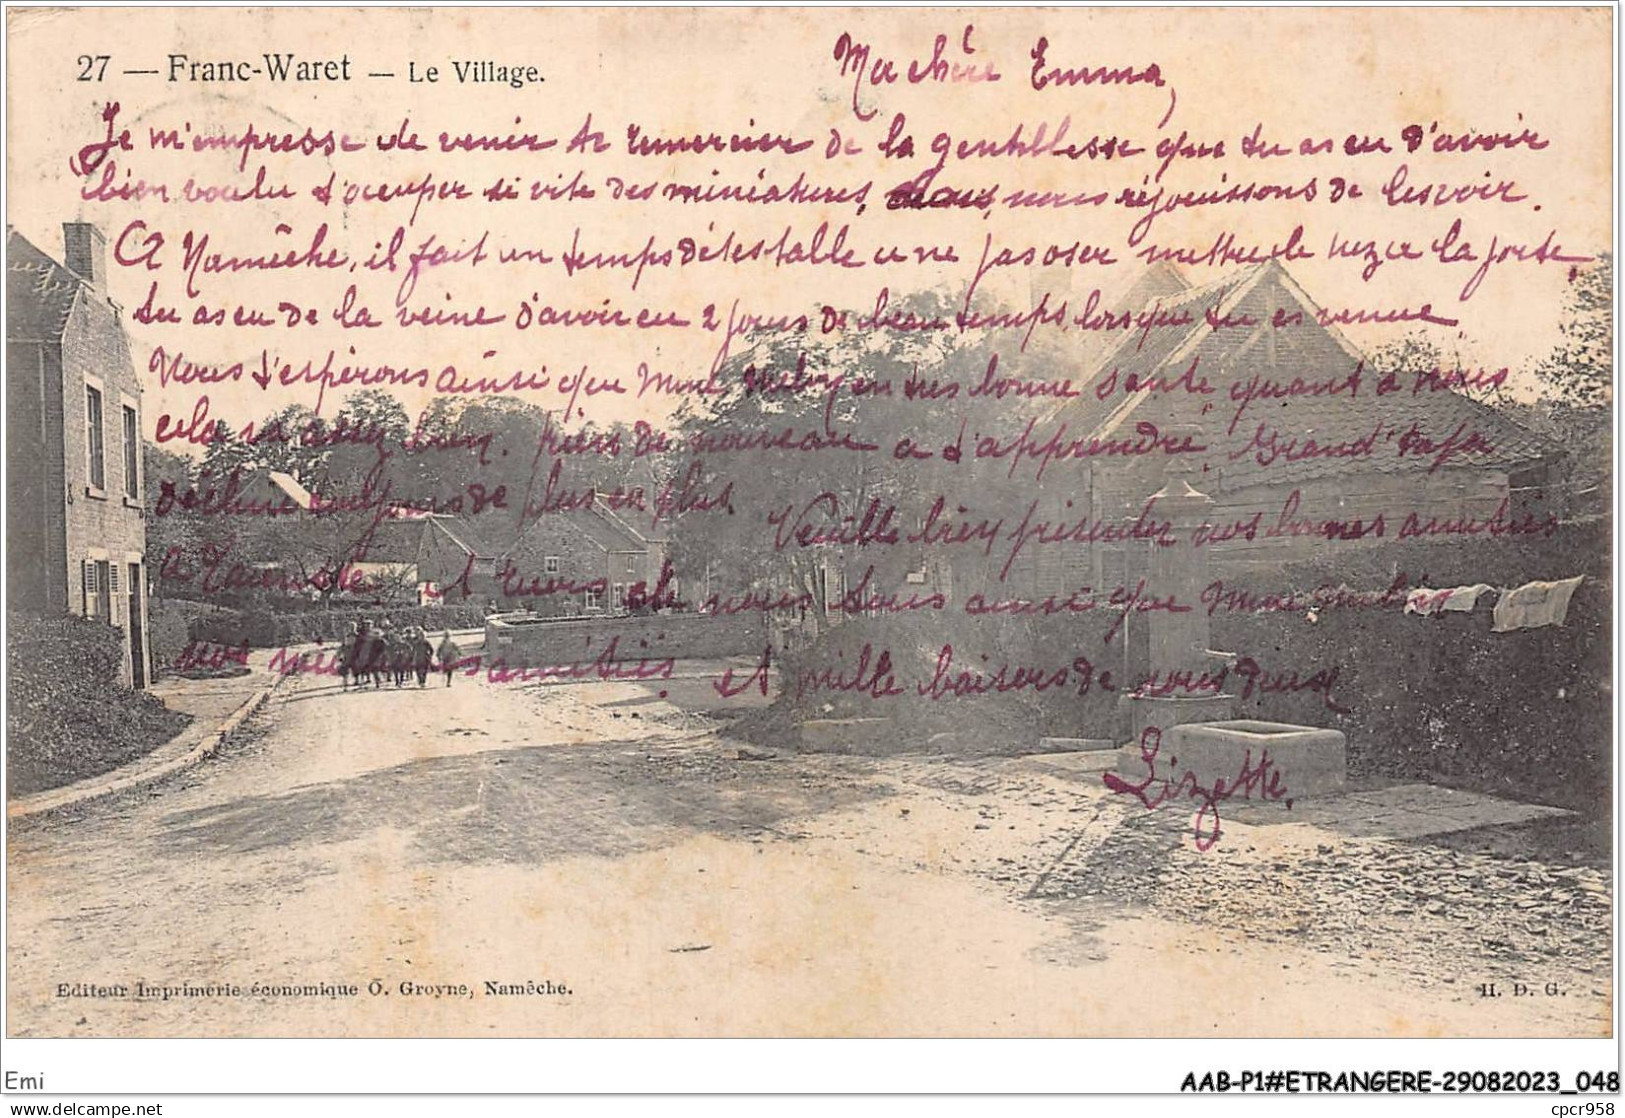 27 — Franc-Waret — Le Village.
Ma chère Emma,
Je m'empresse de venir te remercier de la gentillesse que tu as eu d'avoir
bien voulu t'occuper si vite des miniatures, nous réjouissons de les voir.
A Namêche, il fait un temps détestable a ne pas oser mettre le nez a la porte,
tu as eu de la veine d'avoir eu 2 jours de beau temps, lorsque tu es venue.
Nous t'espérons ainsi que Mme en tres bonne santé quant a nous
cela va assez bien. rien de nouveau a t'apprendre. Grand'Papa
décline toujours de plus en plus.
Veuille bien présenter nos bonnes amitiés
a et reçois de nous tous ainsi que Mme
nos meilleures amitiés. et mille baisers de nous deux
Lizette.
Editeur Imprimerie économique O. Groyne, Namêche.
H. D. G.
Emi
AAB-P1#ETRANGERE-29082023_048
delcampe.net
cpcr958